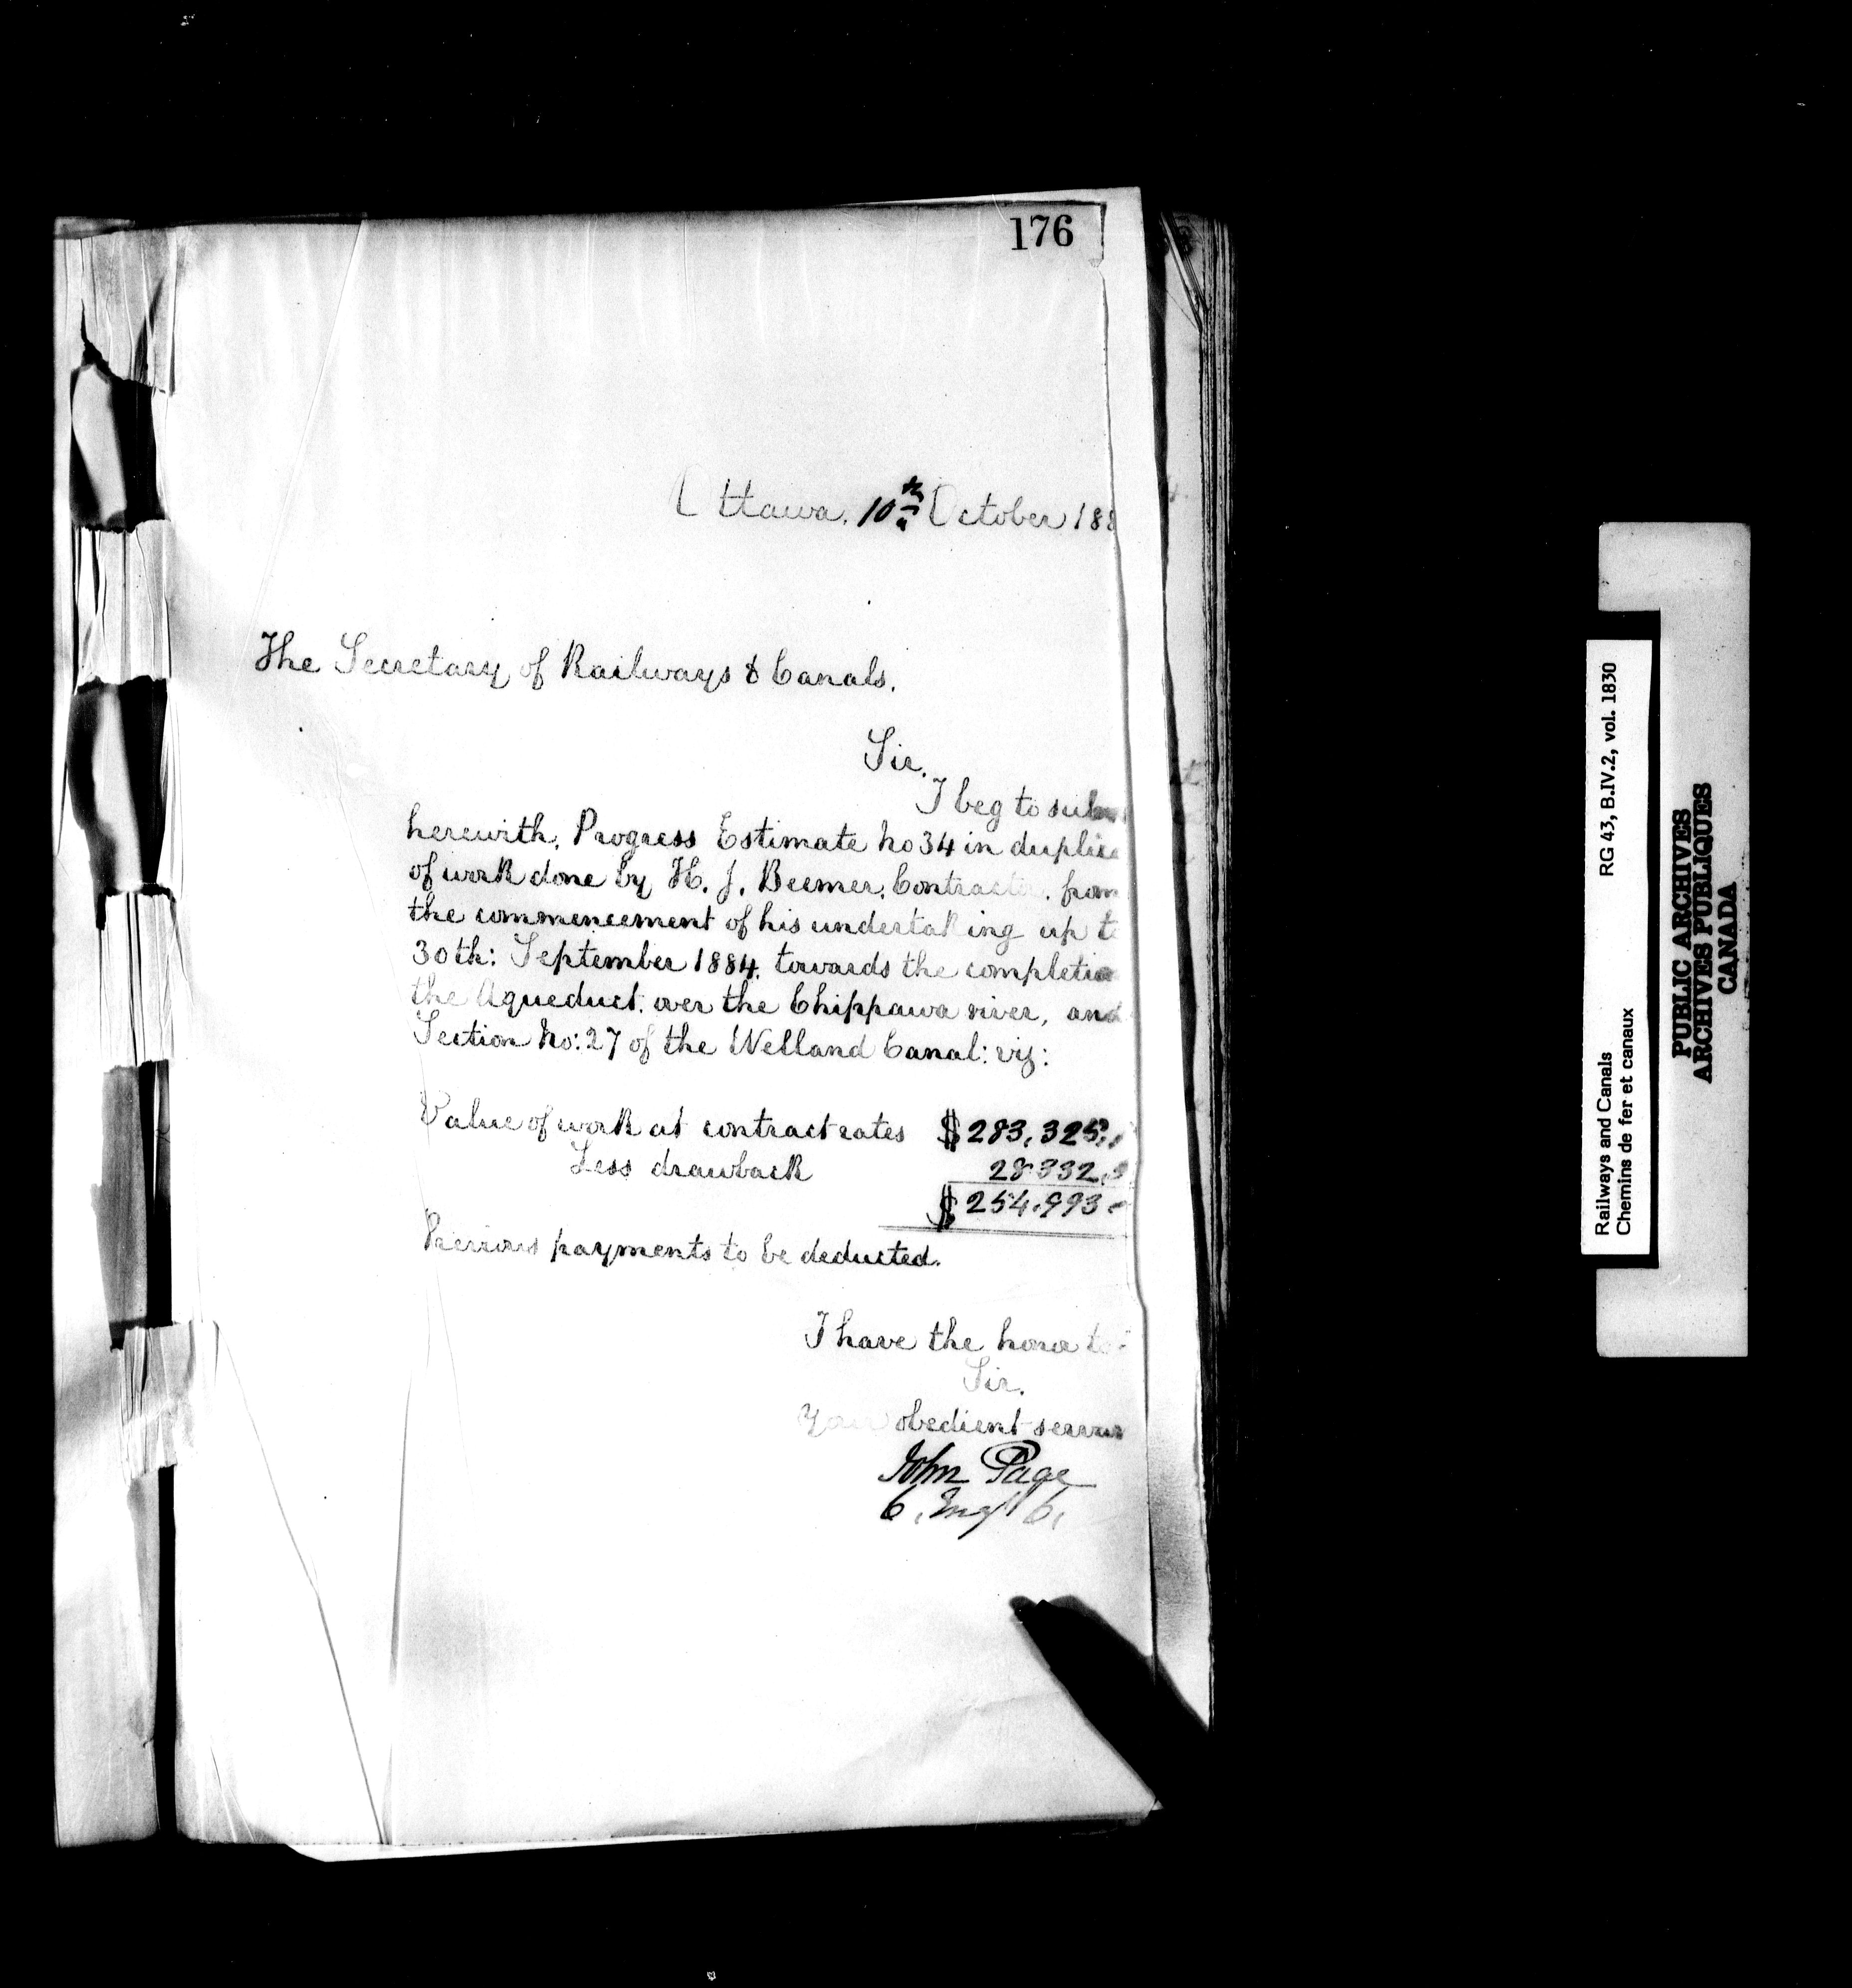 176
Ottawa. 10th October 188
The Secretary of Railways & Canals.
Sir.
I beg to subm
herewith, Progress Estimate No 34 in duplica
of work done by H. J. Beemer, Contractor, from
the commencement of his undertaking up to
30th: September 1884, towards the completion
the Aqueduct, over the Chippawa river, and
Section No: 27 of the Welland Canal: viz:
Value of work at contract rates $283,325,
Less drawback 28 332,
$254,993
Previous payments to be deducted.
I have the honor to
Sir.
Your obedient servan
John Page
C. Engr C.
Railways and Canals RG 43, B.IV.2, vol. 1830
Chemins de fer et canaux
PUBLIC ARCHIVES
ARCHIVES PUBLIQUES
CANADA